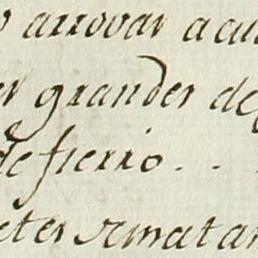 arrovar acu
grandes de
de fierro . .
eter rematar